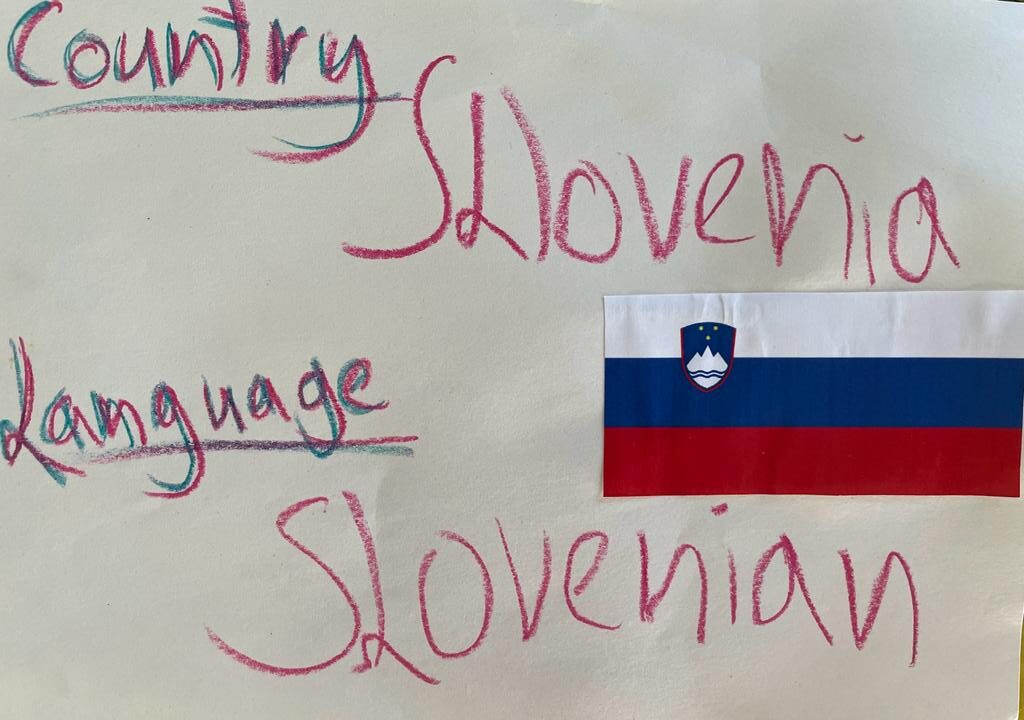 Country
Slovenia
Language
Slovenian